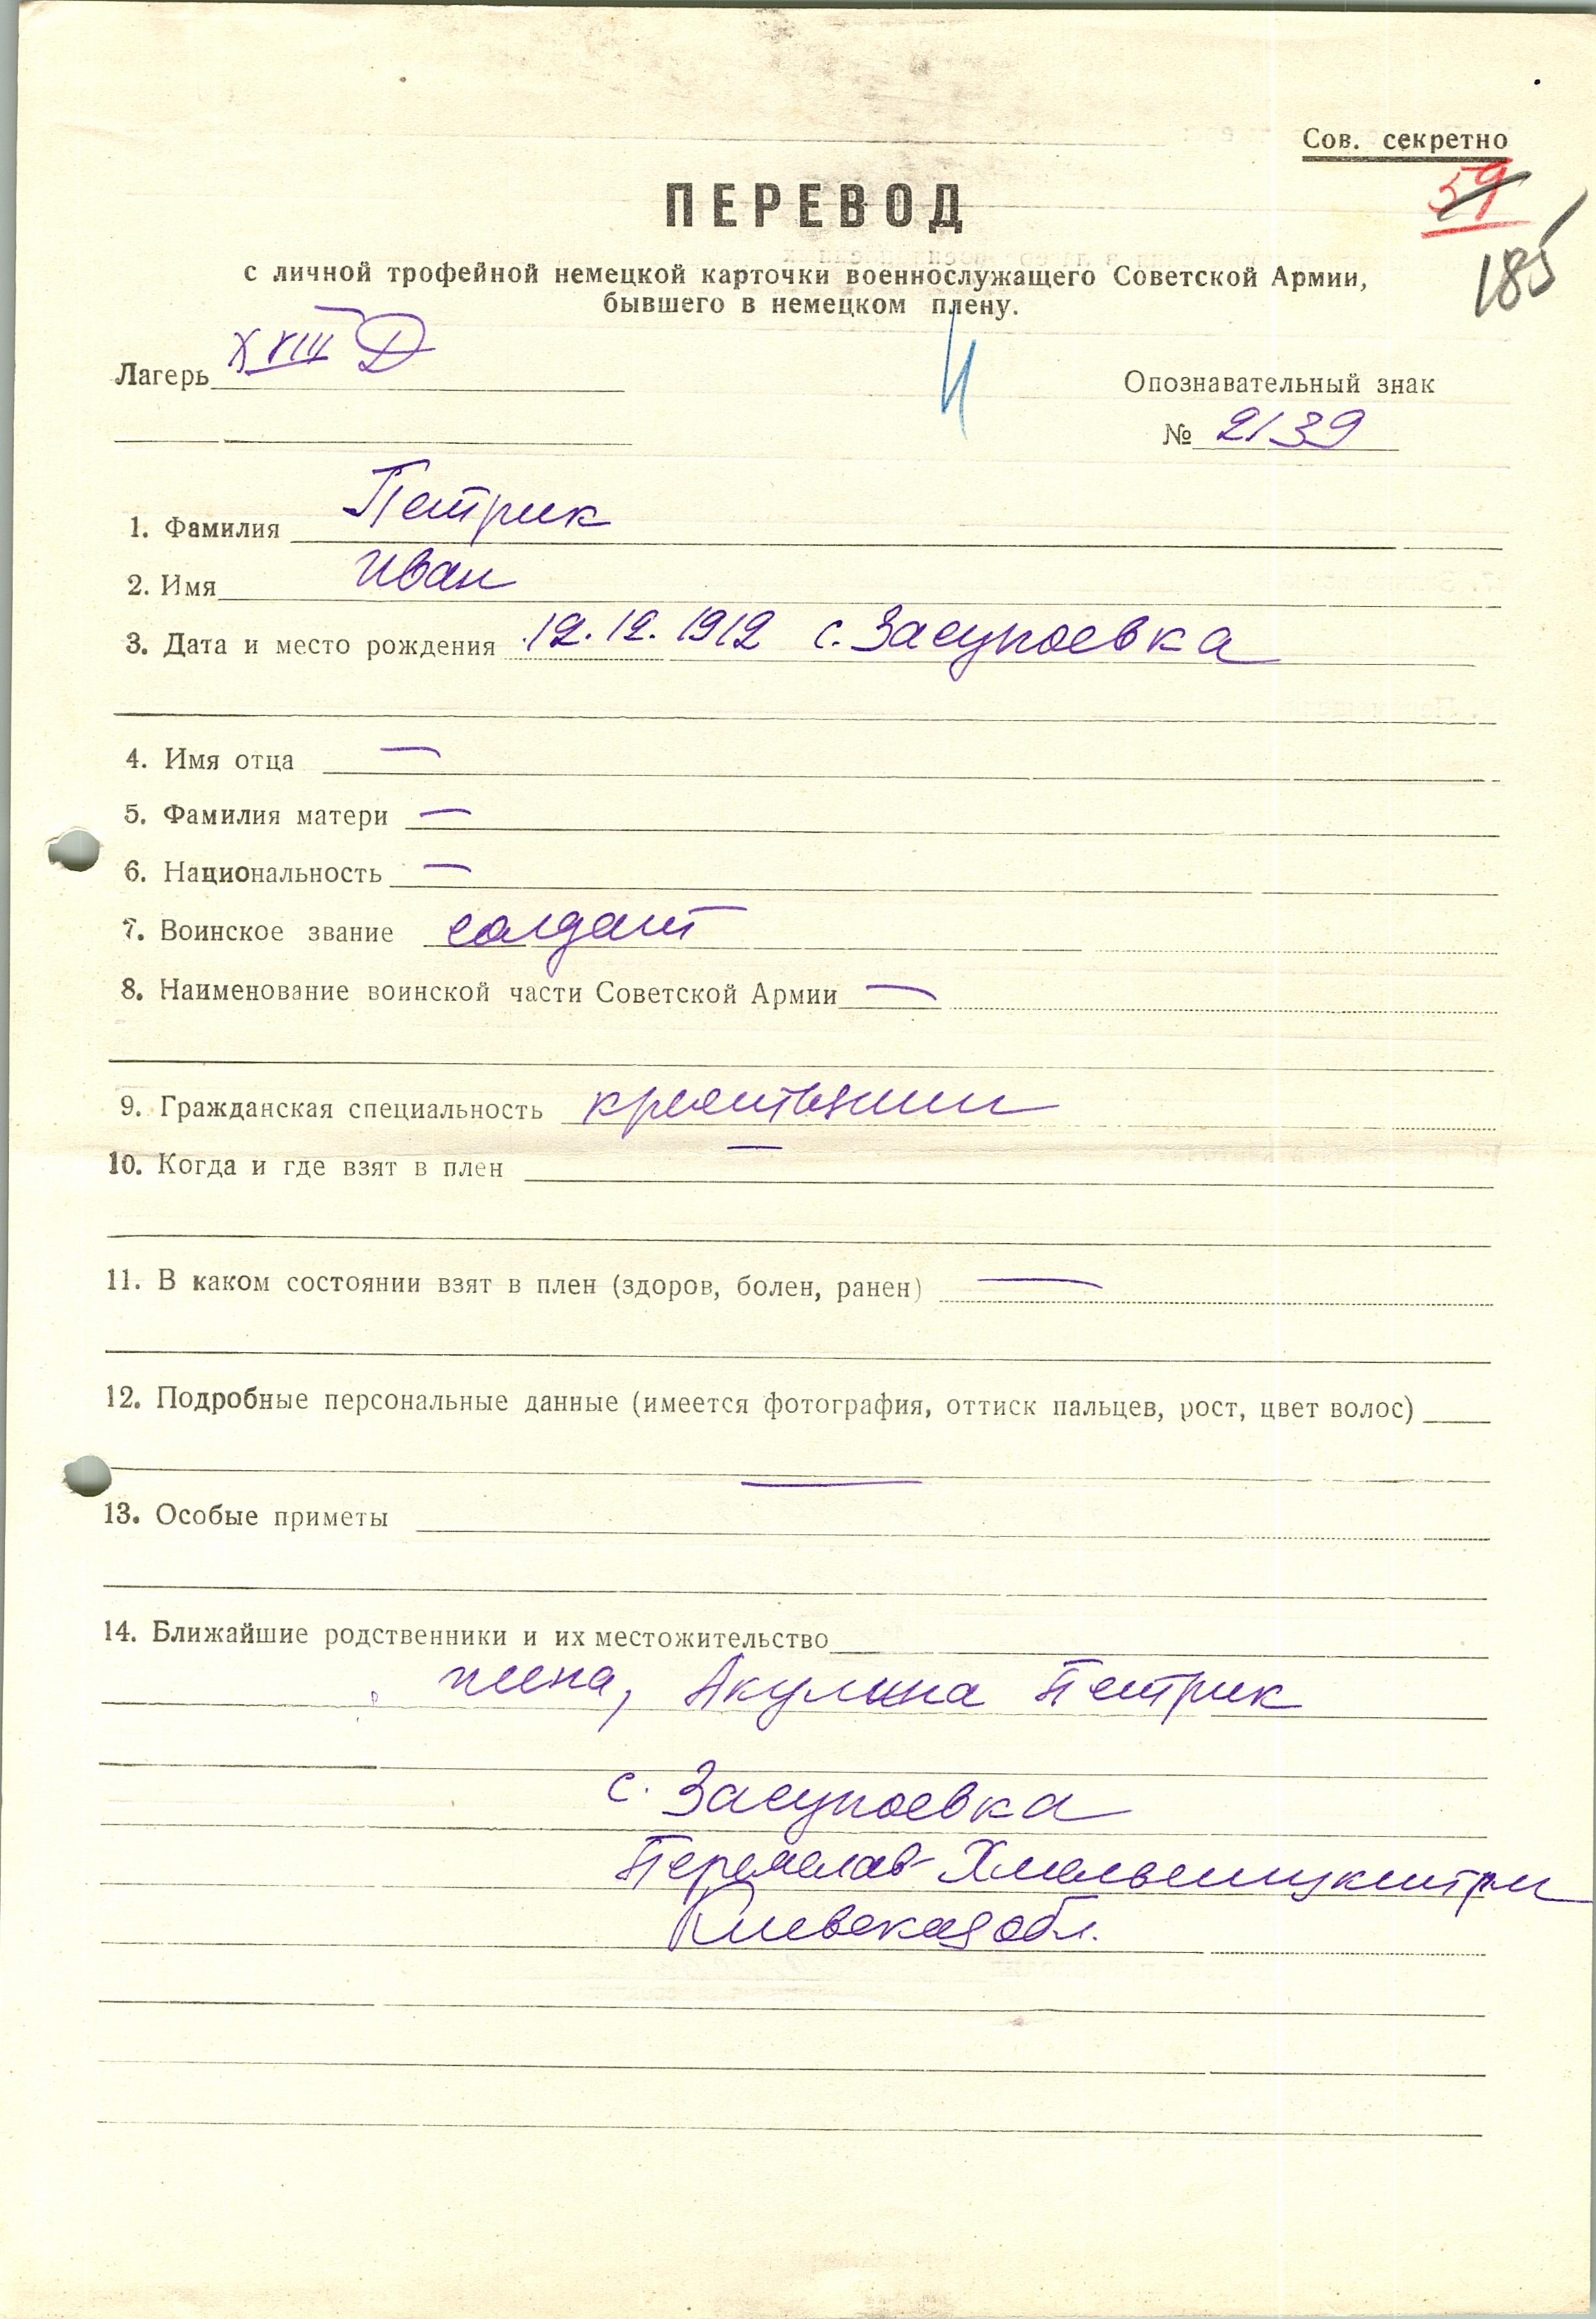 Сов. секретно
59
185
ПЕРЕВОД
с личной трофейной немецкой карточки военнослужащего Советской Армии,
бывшего в немецком плену.
Лагерь XVIII D
Опознавательный знак
№ 2139
1. Фамилия Петрик
2. Имя Иван
3. Дата и место рождения 12.12.1912 с. Засупоевка
4. Имя отца —
5. Фамилия матери —
6. Национальность —
7. Воинское звание солдат
8. Наименование воинской части Советской Армии —
9. Гражданская специальность крестьянин
10. Когда и где взят в плен —
11. В каком состоянии взят в плен (здоров, болен, ранен) —
12. Подробные персональные данные (имеется фотография, оттиск пальцев, рост, цвет волос)
—
13. Особые приметы
14. Ближайшие родственники и их местожительство
жена, Акулина Петрик
с. Засупоевка
Киевская обл.